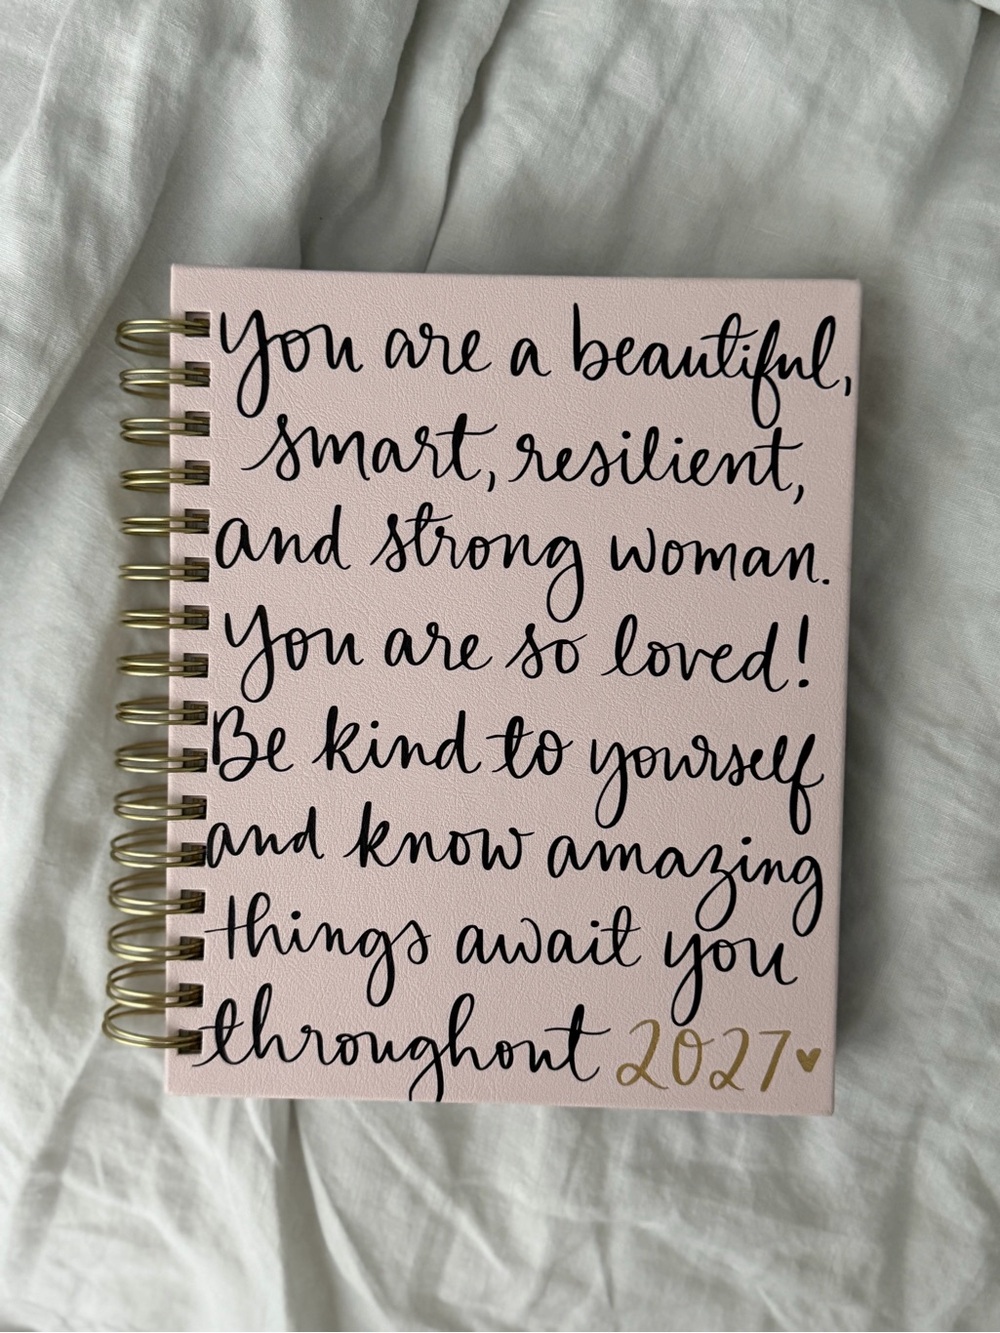 You are a beautiful,
smart, resilient,
and strong woman.
You are so loved!
Be kind to yourself
and know amazing
things await you
throughout 2027